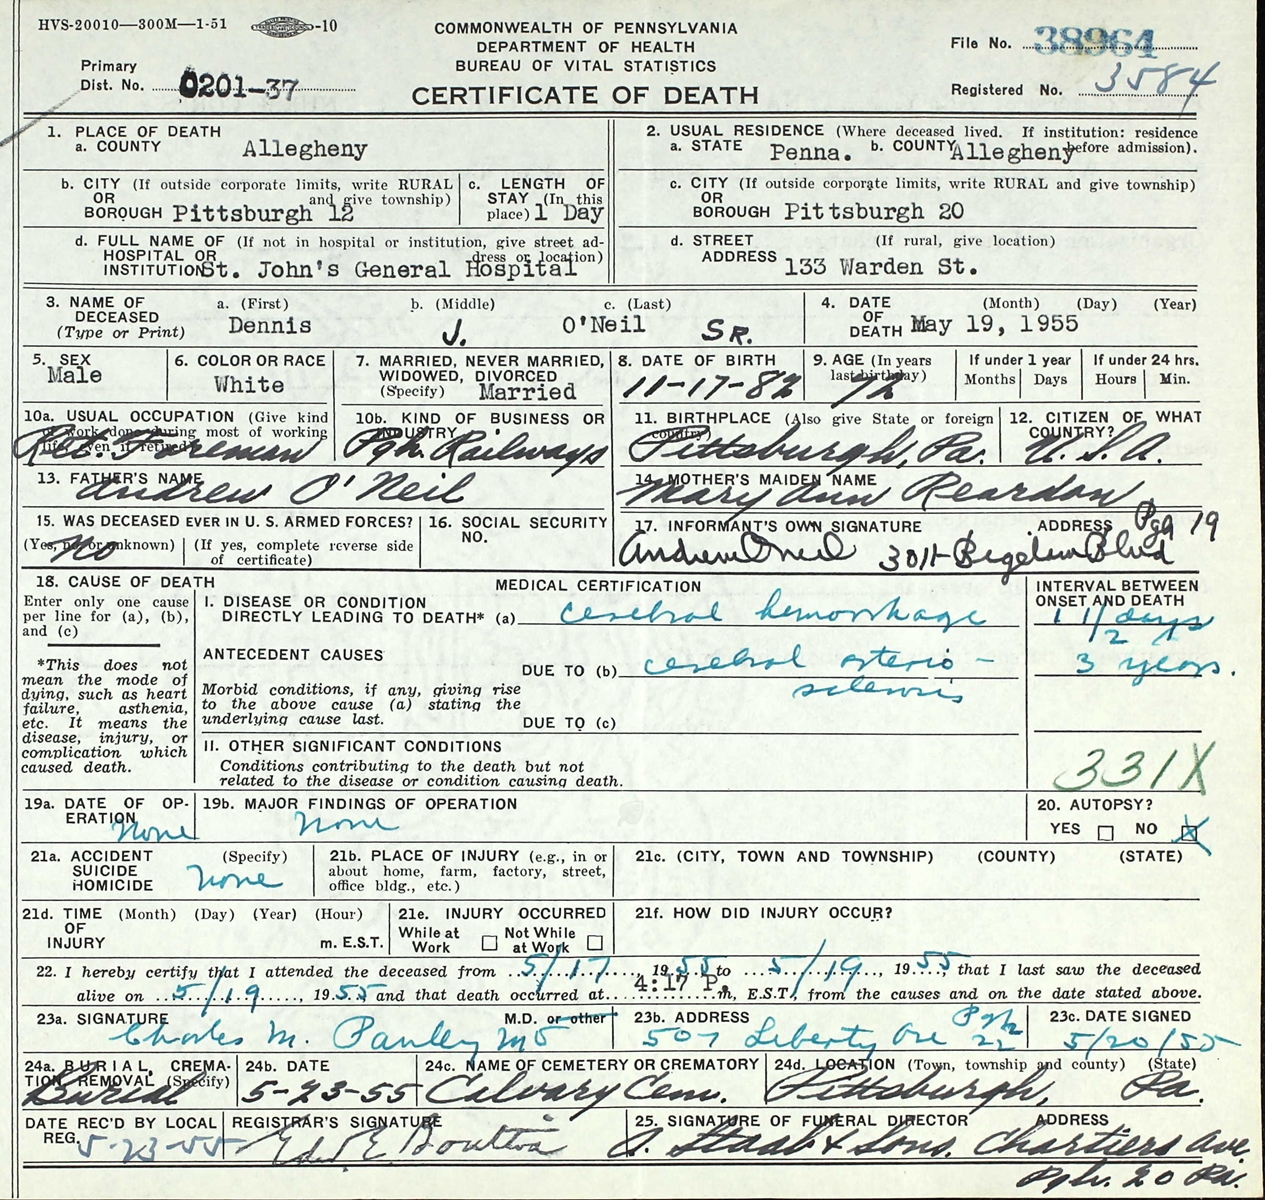 HVS-20010—300M—1-51 -10
COMMONWEALTH OF PENNSYLVANIA
DEPARTMENT OF HEALTH
BUREAU OF VITAL STATISTICS
CERTIFICATE OF DEATH
Primary
Dist. No. 0201-37
File No. 38964
Registered No. 3584
1. PLACE OF DEATH
a. COUNTY Allegheny
2. USUAL RESIDENCE (Where deceased lived. If institution: residence before admission).
a. STATE Penna. b. COUNTY Allegheny
b. CITY (If outside corporate limits, write RURAL and give township)
OR
BOROUGH Pittsburgh 12
c. LENGTH OF STAY (In this place) 1 Day
c. CITY (If outside corporate limits, write RURAL and give township)
OR
BOROUGH Pittsburgh 20
d. FULL NAME OF (If not in hospital or institution, give street address or location)
HOSPITAL OR
INSTITUTION St. John's General Hospital
d. STREET (If rural, give location)
ADDRESS 133 Warden St.
3. NAME OF DECEASED (Type or Print)
a. (First) b. (Middle) c. (Last)
Dennis J. O'Neil SR.
4. DATE OF DEATH (Month) (Day) (Year)
May 19, 1955
5. SEX
Male
6. COLOR OR RACE
White
7. MARRIED, NEVER MARRIED, WIDOWED, DIVORCED (Specify) Married
8. DATE OF BIRTH
11-17-82
9. AGE (In years last birthday)
72
If under 1 year
Months Days
If under 24 hrs.
Hours Min.
10a. USUAL OCCUPATION (Give kind of work done during most of working life, even if retired)
Ret. Foreman
10b. KIND OF BUSINESS OR INDUSTRY
Pgh. Railways
11. BIRTHPLACE (Also give State or foreign country)
Pittsburgh, Pa.
12. CITIZEN OF WHAT COUNTRY?
U.S.A.
13. FATHER'S NAME
Andrew O'Neil
14. MOTHER'S MAIDEN NAME
Mary Ann Reardon
15. WAS DECEASED EVER IN U. S. ARMED FORCES?
(Yes, no, or unknown) (If yes, complete reverse side of certificate)
No
16. SOCIAL SECURITY NO.
17. INFORMANT'S OWN SIGNATURE ADDRESS Pgh 19
Andrew O'Neil Bigelow Blvd
18. CAUSE OF DEATH
Enter only one cause per line for (a), (b), and (c)
*This does not mean the mode of dying, such as heart failure, asthenia, etc. It means the disease, injury, or complication which caused death.
MEDICAL CERTIFICATION
INTERVAL BETWEEN ONSET AND DEATH
I. DISEASE OR CONDITION
DIRECTLY LEADING TO DEATH* (a) cerebral hemorrhage 1 1/2 days
ANTECEDENT CAUSES
Morbid conditions, if any, giving rise to the above cause (a) stating the underlying cause last.
DUE TO (b) cerebral arterio-
sclerosis 3 years.
DUE TO (c)
II. OTHER SIGNIFICANT CONDITIONS
Conditions contributing to the death but not
related to the disease or condition causing death.
331X
19a. DATE OF OPERATION
None
19b. MAJOR FINDINGS OF OPERATION
None
20. AUTOPSY?
YES NO X
21a. ACCIDENT (Specify)
SUICIDE
HOMICIDE None
21b. PLACE OF INJURY (e.g., in or about home, farm, factory, street, office bldg., etc.)
21c. (CITY, TOWN AND TOWNSHIP) (COUNTY) (STATE)
21d. TIME (Month) (Day) (Year) (Hour)
OF
INJURY m. E.S.T.
21e. INJURY OCCURRED
While at Work Not While at Work
21f. HOW DID INJURY OCCUR?
22. I hereby certify that I attended the deceased from 5/17, 1955 to 5/19, 1955, that I last saw the deceased
alive on 5/19, 1955 and that death occurred at 4:17 P. m, E.S.T., from the causes and on the date stated above.
23a. SIGNATURE M.D. or other
Charles M. Pauley MD
23b. ADDRESS
507 Liberty Ave Pgh 22
23c. DATE SIGNED
5/20/55
24a. BURIAL, CREMATION, REMOVAL (Specify)
Burial
24b. DATE
5-23-55
24c. NAME OF CEMETERY OR CREMATORY
Calvary Cem.
24d. LOCATION (Town, township and county) (State)
Pittsburgh, Pa.
DATE REC'D BY LOCAL REG.
5-23-55
REGISTRAR'S SIGNATURE
25. SIGNATURE OF FUNERAL DIRECTOR ADDRESS
Staab & Sons. Chartiers Ave.
Pgh. 20 Pa.